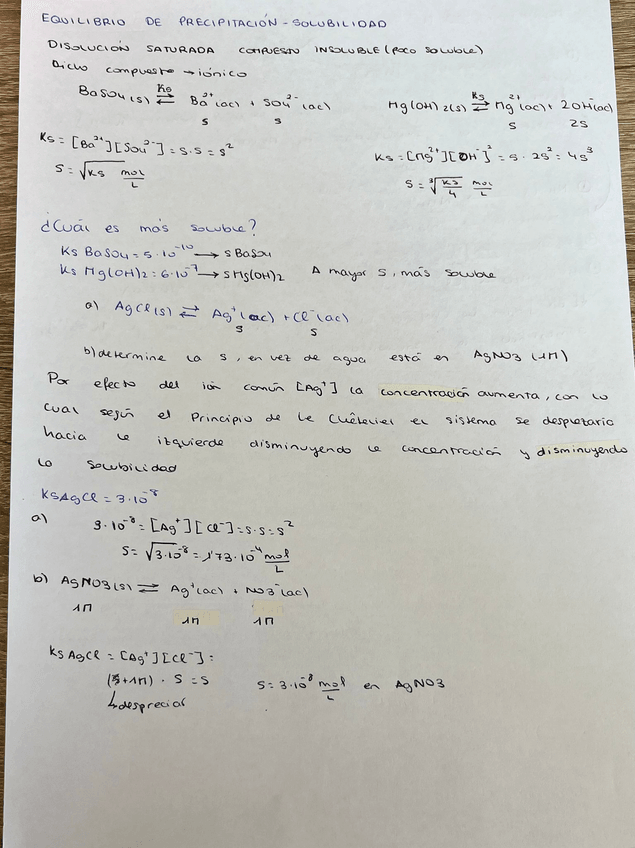 EQUILIBRIO DE PRECIPITACIÓN - SOLUBILIDAD
DISOLUCIÓN SATURADA COMPUESTO INSOLUBLE (POCO SOLUBLE)
Dicho compuesto → iónico
BaSO4(s) ⇌ Ba²⁺(ac) + SO4²⁻(ac)
s s
Ks = [Ba²⁺][SO4²⁻] = s·s = s²
s = √Ks mol/L
Mg(OH)2(s) ⇌ Ks Mg²⁺(ac) + 2OH⁻(ac)
s 2s
Ks = [Mg²⁺][OH⁻]² = s · 2s² = 4s³
s = ∛(Ks/4) mol/L
¿Cuál es más soluble?
Ks BaSO4 = 5·10⁻¹⁰ → s BaSO4
Ks Mg(OH)2 = 6·10⁻⁷ → s Mg(OH)2 A mayor s, más soluble
a) AgCl(s) ⇌ Ag⁺(ac) + Cl⁻(ac)
s s
b) determine la s, en vez de agua está en AgNO3 (1M)
Por efecto del ión común [Ag⁺] la concentración aumenta, con lo
cual según el Principio de Le Châtelier el sistema se desplazaría
hacia la izquierda disminuyendo la concentración y disminuyendo
la solubilidad
Ks AgCl = 3·10⁻⁸
a) 3·10⁻⁸ = [Ag⁺][Cl⁻] = s·s = s²
s = √3·10⁻⁸ = 1'73·10⁻⁴ mol/L
b) AgNO3(s) ⇌ Ag⁺(ac) + NO3⁻(ac)
1M 1M 1M
Ks AgCl = [Ag⁺][Cl⁻] =
(s+1M) · s = s s = 3·10⁻⁸ mol/L en AgNO3
↳ despreciar